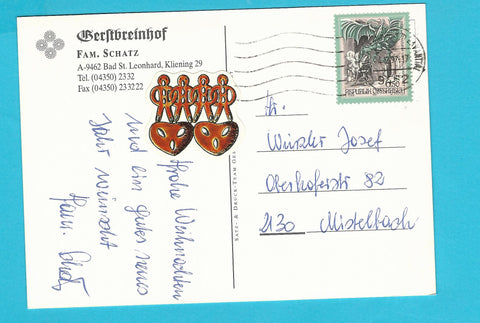 Gerstbreinhof
FAM. SCHATZ
A-9462 Bad St. Leonhard, Kliening 29
Tel. (04350) 2332
Fax (04350) 233222
Frohe Weihnachten
und ein gutes neues
Jahr wünscht
Fam. Schatz
SATZ- & DRUCK-TEAM
REPUBLIK ÖSTERREICH
Wurzler Josef
Oberhoferstr 82
2130 Mistelbach